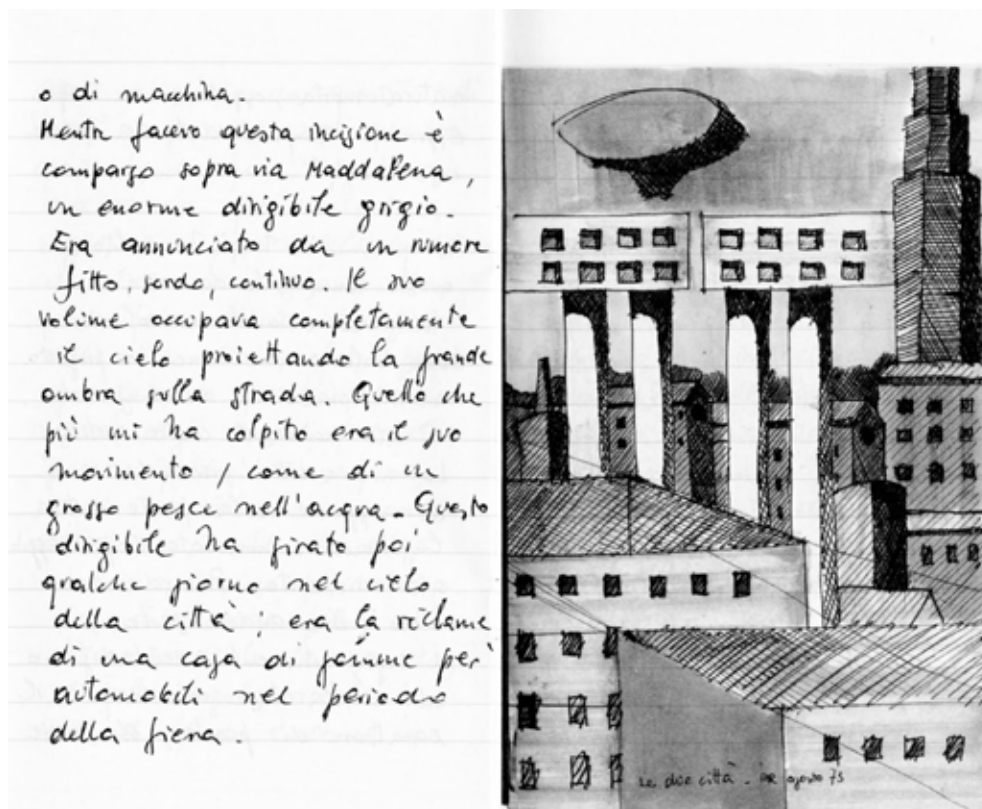 o di macchina.
Mentre facevo questa incisione è
comparso sopra via Maddalena,
un enorme dirigibile grigio.
Era annunciato da un rumore
fitto, sordo, continuo. Il suo
volume occupava completamente
il cielo proiettando la grande
ombra sulla strada. Quello che
più mi ha colpito era il suo
movimento / come di un
grosso pesce nell'acqua. Questo
dirigibile ha girato poi
qualche giorno nel cielo
della città; era la réclame
di una casa di gomme per
automobili nel periodo
della fiera.
Le due città - AR agosto 75